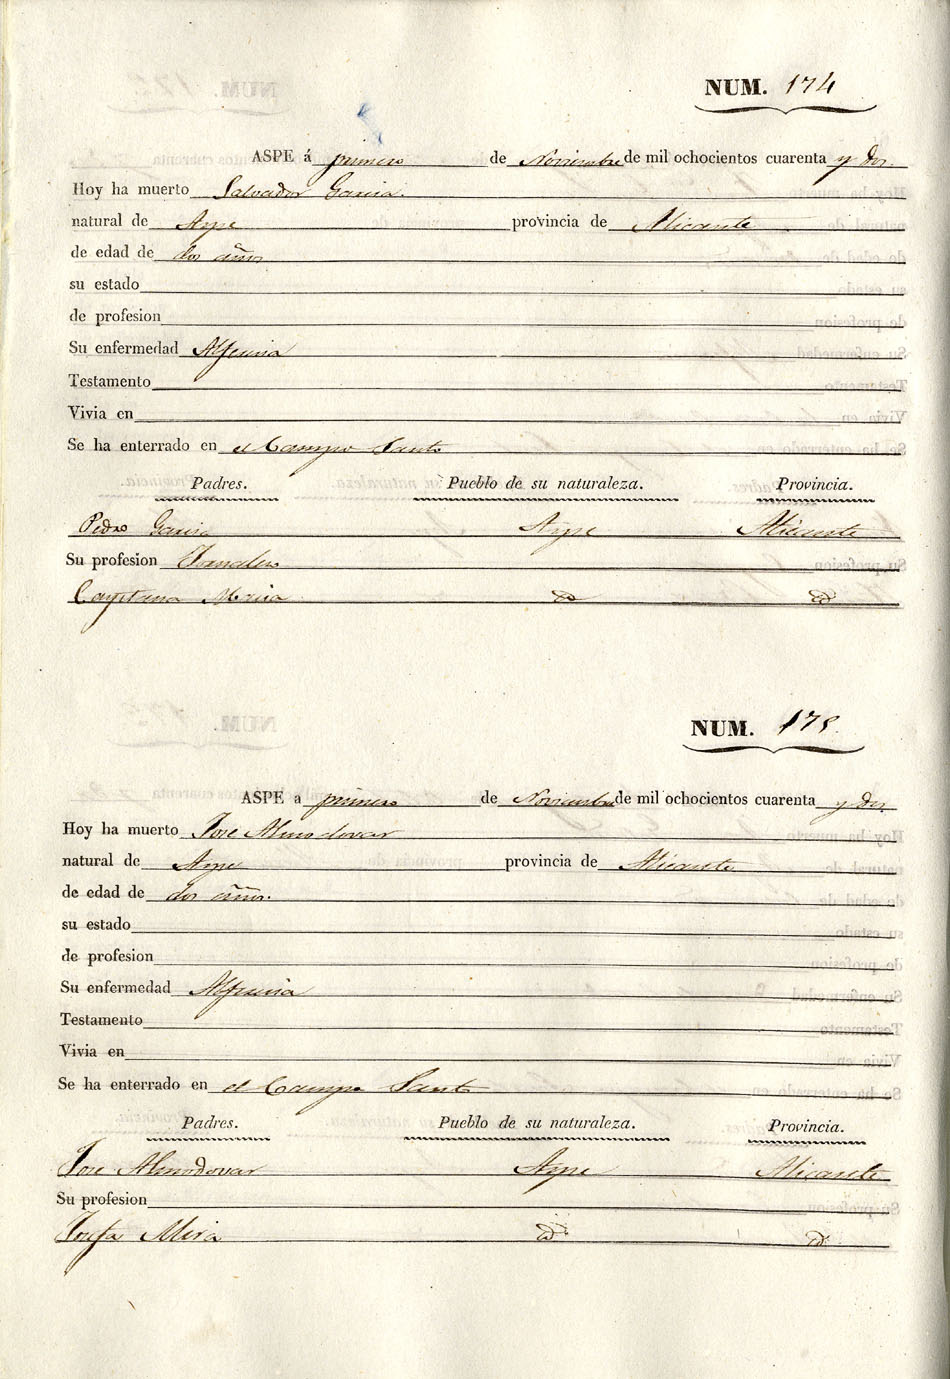 NUM. 174
ASPE á primero de Noviembre de mil ochocientos cuarenta y dos.
Hoy ha muerto Salvador Garcia.
natural de Aspe provincia de Alicante
de edad de dos años
su estado
de profesion
Su enfermedad Alferecia
Testamento
Vivia en
Se ha enterrado en el Campo Santo
Padres. Pueblo de su naturaleza. Provincia.
Pedro Garcia Aspe Alicante
Su profesion Jornalero
Cayetana id id
NUM. 175
ASPE a primero de Noviembre de mil ochocientos cuarenta y dos.
Hoy ha muerto Jose Almodovar
natural de Aspe provincia de Alicante
de edad de dos años.
su estado
de profesion
Su enfermedad Alferecia
Testamento
Vivia en
Se ha enterrado en el Campo Santo
Padres. Pueblo de su naturaleza. Provincia.
Jose Almodovar Aspe Alicante
Su profesion
Josefa Mira id id